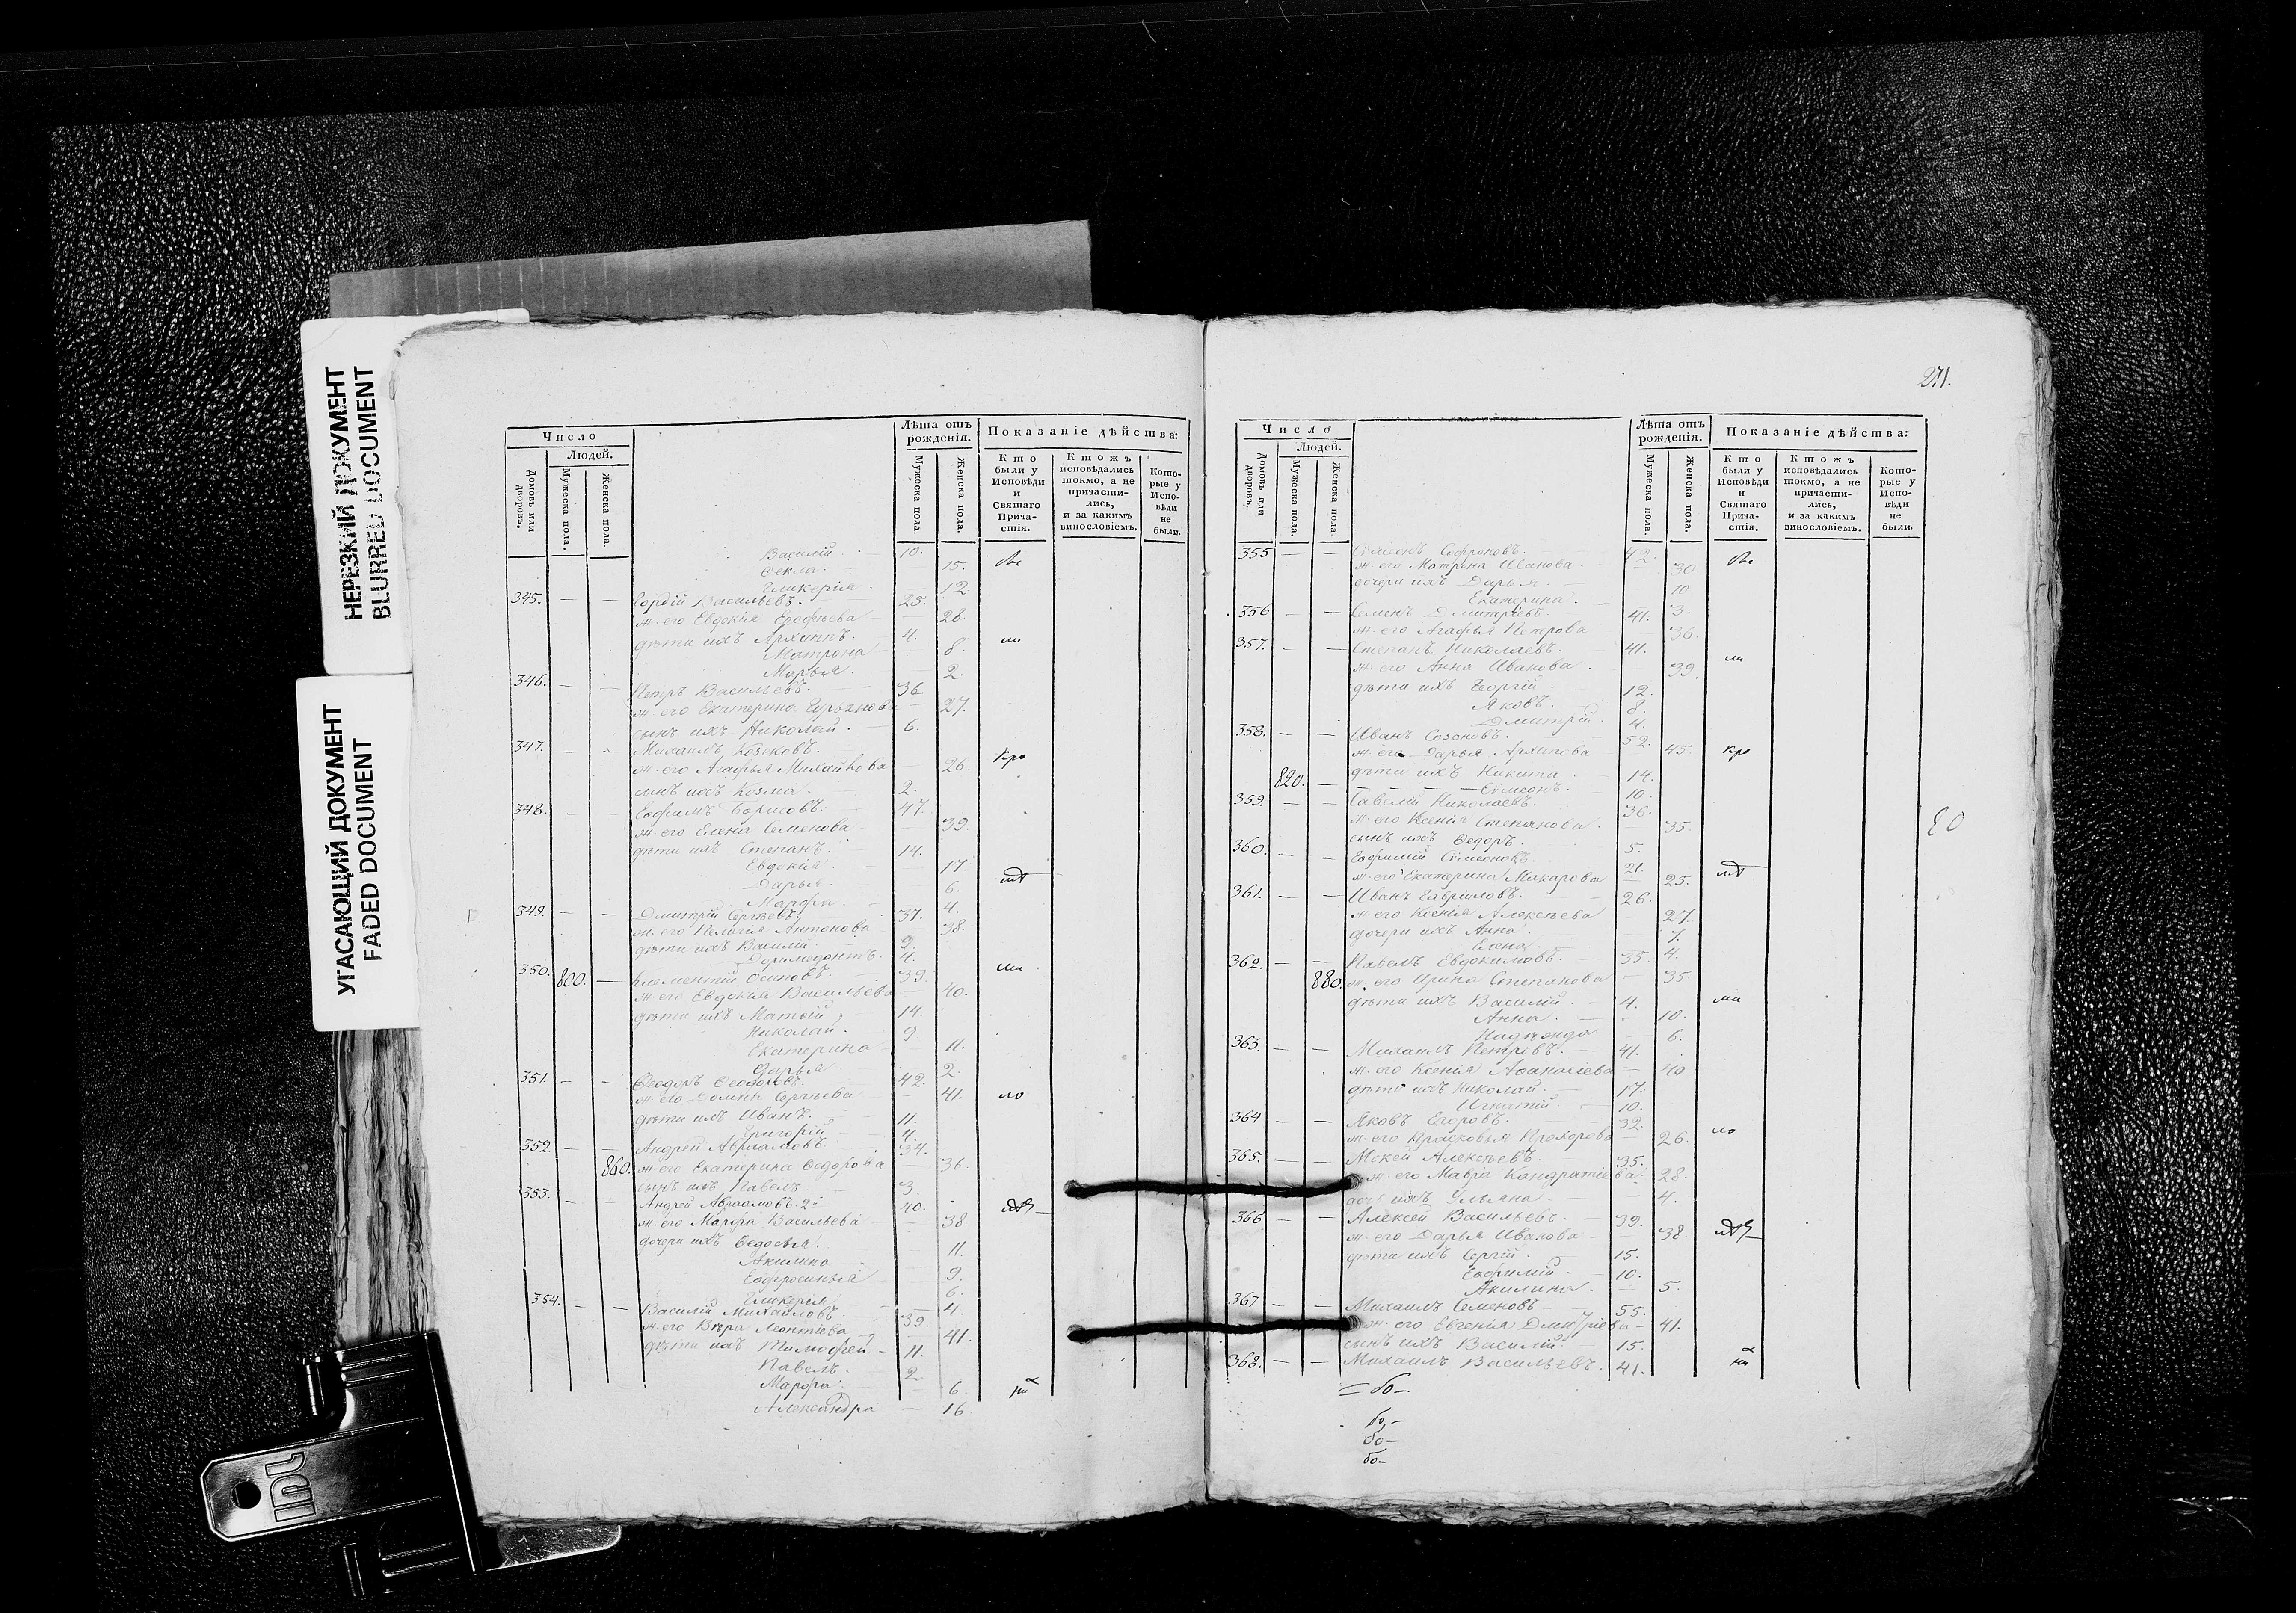 НЕРЕЗКИЙ ДОКУМЕНТ
BLURRED DOCUMENT
УГАСАЮЩИЙ ДОКУМЕНТ
FADED DOCUMENT
Число
Людей.
Домовъ или дворовъ.
Мужеска пола.
Женска пола.
Лѣта отъ рожденія.
Мужеска пола.
Женска пола.
Показаніе дѣйства:
Кто были у Исповѣди и Святаго Причастія.
Ктожъ исповѣдались токмо, а не причастились, и за какимъ винословіемъ.
Которые у Исповѣди не были.
Василій 10.
Фекла 15.
Гликерія 12
345. Гордій Васильевъ. 25.
ж. его Евдокія Ерофеева 28.
дѣти ихъ Архиппъ. 4.
Матрона 8.
Марья. 2.
346. Петръ Васильевъ. 36.
ж. его Екатерина 27.
сынъ ихъ Николай. 6.
347. Михаилъ
ж. его Агафья Михайлова 26.
сынъ ихъ Козма. 2.
348. Евфимъ Борисовъ. 47.
ж. его Елена Семенова 39.
дѣти ихъ Степанъ. 14.
Евдокія. 17.
Дарья. 6.
Марфа. 4.
349. Дмитрій Сергѣевъ. 37.
ж. его Пелагія Антонова 38.
дѣти ихъ Василій 9.
Доримедонтъ. 4.
350. 800. Климентій Осиповъ. 39.
ж. его Евдокія Васильева 40.
дѣти ихъ Матѳій 14.
Николай. 9
Екатерина 11.
Дарья 2.
351. Ѳеодоръ 42.
ж. его Домна Сергѣева 41.
дѣти ихъ Иванъ. 11.
Григорій 4.
352. Андрей Авраамовъ 34.
860. ж. его Екатерина Ѳедорова 36.
сынъ ихъ Павелъ 3.
353. Андрей Авраамовъ 2й 40.
ж. его Марфа Васильева 38
дочери ихъ Ѳедосья. 11.
Акилина 9.
Евфросинья 6.
Гликерія 4.
354. Василій Михайловъ. 39.
ж. его Вѣра Леонтіева 41.
дѣти ихъ Тимофей 11.
Павелъ. 2.
Марфа. 6.
Александра 16.
271.
Число
Людей.
Домовъ или дворовъ.
Мужеска пола.
Женска пола.
Лѣта отъ рожденія.
Мужеска пола.
Женска пола.
Показаніе дѣйства:
Кто были у Исповѣди и Святаго Причастія.
Ктожъ исповѣдались токмо, а не причастились, и за какимъ винословіемъ.
Которые у Исповѣди не были.
355 Сѵмеонъ Софроновъ. 42.
ж. его Матрона Иванова 30
дочери ихъ Дарья 10
Екатерина. 3.
356 Семенъ Дмитріевъ. 41.
ж. его Агафья Петрова 36.
357. Степанъ Николаевъ. 41.
ж. его Анна Иванова 39.
дѣти ихъ Георгій 12.
Яковъ. 8.
Дмитрій. 4.
358. Иванъ Созоновъ. 52.
ж. его Дарья Архипова 45.
820. дѣти ихъ Никита 14.
Сѵмеонъ. 10.
359. Савелій Николаевъ. 36.
ж. его Ксенія Степанова 35.
сынъ ихъ Ѳедоръ. 5.
360. Евфимій Сѵмеоновъ 21.
ж. его Екатерина Макарова 25.
361. Иванъ Гавриловъ. 26.
ж. его Ксенія Алексѣева 27.
дочери ихъ Анна 7.
Елена. 4.
362. Павелъ Евдокимовъ. 35.
880. ж. его Ирина Степанова 35
дѣти ихъ Василій 4.
Анна 10.
Надежда 6.
363. Михаилъ Петровъ. 41.
ж. его Ксенія Аѳанасіева 40
дѣти ихъ Николай. 17.
Игнатій 10.
364 Яковъ Егоровъ. 32.
ж. его Прасковья Прохорова 26.
365. Мокей Алексѣевъ. 35.
ж. его Мавра Кондратіева 28.
дочь ихъ Ульяна 4.
366 Алексѣй Васильевъ. 39.
ж. его Дарья Иванова 38
дѣти ихъ Сергій. 15.
Евфимій. 10.
Акилина. 5.
367 Михаилъ Семеновъ 55.
ж. его Евгенія Дмитріева 41.
сынъ ихъ Василій. 15.
368. Михаилъ Васильевъ. 41.